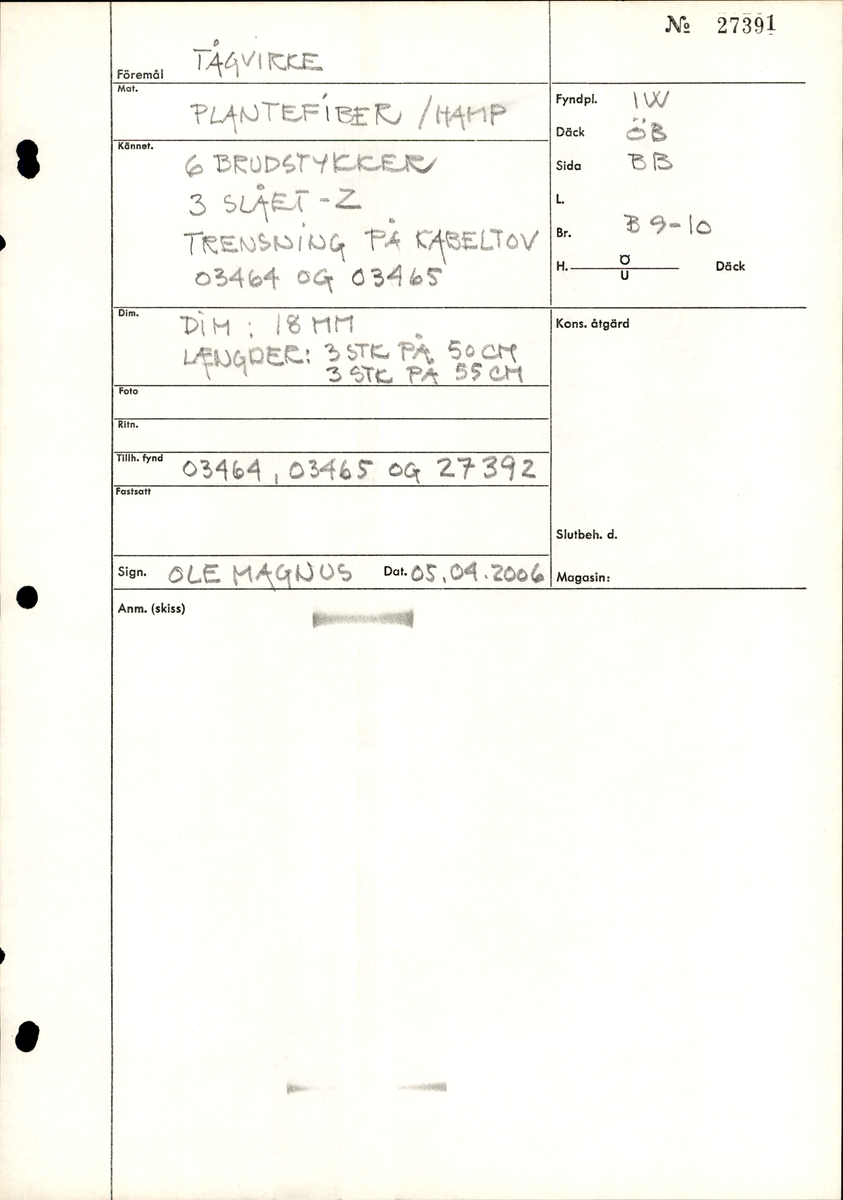 № 27391
Föremål TÅGVIRKE
Mat. PLANTEFIBER / HAMP
Fyndpl. IW
Däck ÖB
Sida BB
L.
Br. B 9-10
H. Ö U Däck
Kännet. 6 BRUDSTYKKER
3 SLÅET - Z
TRENSNING PÅ KABELTOV
03464 OG 03465
Dim. DIM : 18 MM
LÆNGDER: 3 STK PÅ 50 CM
3 STK PÅ 55 CM
Kons. åtgärd
Foto
Ritn.
Tillh. fynd 03464, 03465 OG 27392
Fastsatt
Slutbeh. d.
Sign. OLE MAGNUS Dat. 05.04.2006
Magasin:
Anm. (skiss)